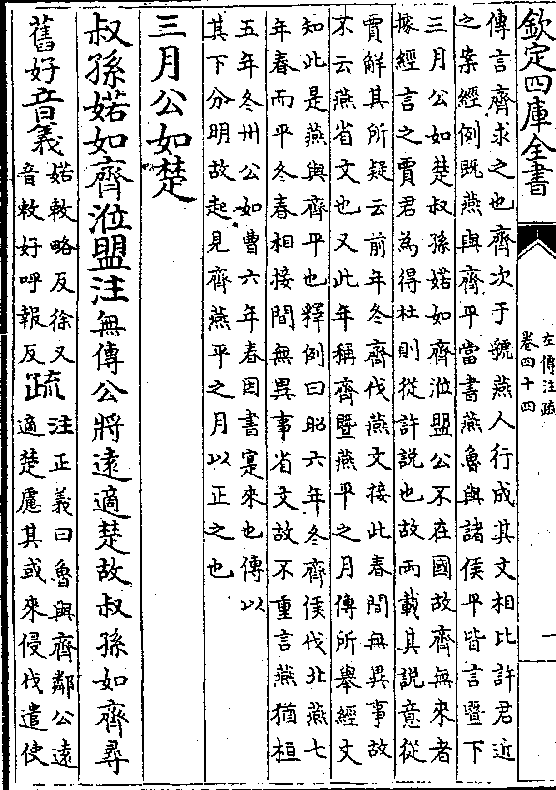 欽定四庫全書
左傳注疏
卷四十四
一
傳言齊求之也齊次于虢燕人行成其文相比許君近
之案經例既燕與齊平當書燕魯與諸侯平皆言暨下
三月公如楚叔孫婼如齊涖盟公不在國故齊無來者
據經言之賈君為得杜則從許說也故兩載其說意從
賈解其所疑云前年冬齊伐燕文接此春間無異事故
不云燕省文也又此年稱齊暨燕平之月傳所舉經文
知此是燕與齊平也釋例曰昭六年冬齊侯伐北燕七
年春而平冬春相接間無異事省文故不重言燕猶桓
五年冬州公如曹六年春因書寔來也傳以
其下分明故起見齊燕平之月以正之也
三月公如楚
叔孫婼如齊涖盟注無傳公將遠適楚故叔孫如齊尋
舊好音義婼敕略反徐又音敕好呼報反疏注正義曰魯與齊鄰公遠適楚慮其或來侵伐遣使